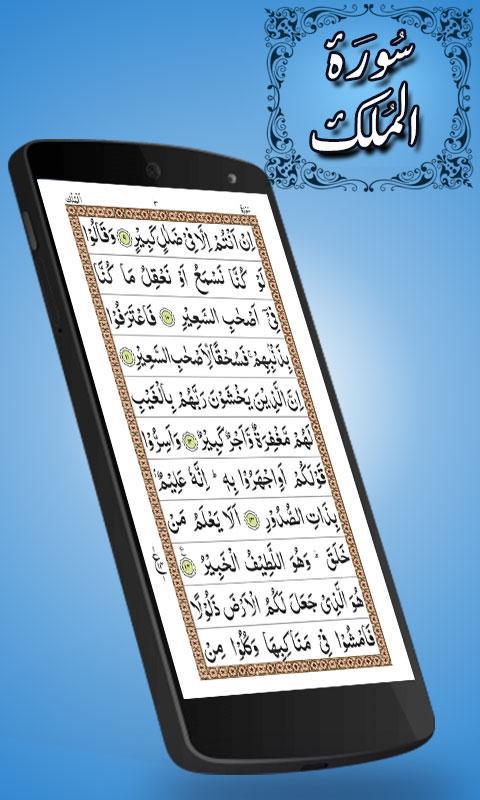 سُورَة
المُلک
اَلْمُلْك ٣ سُورَة
اِنْ اَنْتُمْ اِلَّا فِیْ ضَلٰلٍ كَبِیْرٍ ۹ وَقَالُوْا
لَوْ كُنَّا نَسْمَعُ اَوْ نَعْقِلُ مَا كُنَّا
فِیْۤ اَصْحٰبِ السَّعِیْرِ ۱۰ فَاعْتَرَفُوْا
بِذَنْۢبِهِمْ ۚ فَسُحْقًا لِّاَصْحٰبِ السَّعِیْرِ ۱۱
اِنَّ الَّذِیْنَ یَخْشَوْنَ رَبَّهُمْ بِالْغَیْبِ
لَهُمْ مَّغْفِرَةٌ وَّاَجْرٌ كَبِیْرٌ ۱۲ وَاَسِرُّوْا
قَوْلَكُمْ اَوِ اجْهَرُوْا بِهٖ ؕ اِنَّهٗ عَلِیْمٌۢ
بِذَاتِ الصُّدُوْرِ ۱۳ اَلَا یَعْلَمُ مَنْ
خَلَقَ ؕ وَهُوَ اللَّطِیْفُ الْخَبِیْرُ ۱۴ ع
هُوَ الَّذِیْ جَعَلَ لَكُمُ الْاَرْضَ ذَلُوْلًا
فَامْشُوْا فِیْ مَنَاكِبِهَا وَكُلُوْا مِنْ